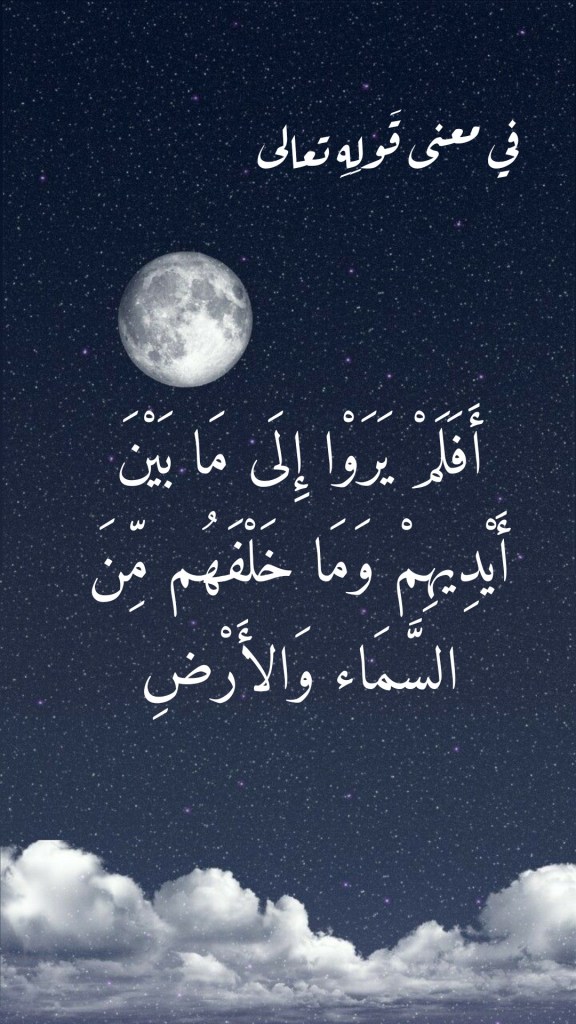 في معنى قَولِهِ تعالى
أَفَلَمْ يَرَوْا إِلَى مَا بَيْنَ
أَيْدِيهِمْ وَمَا خَلْفَهُم مِّنَ
السَّمَاء وَالأَرْضِ